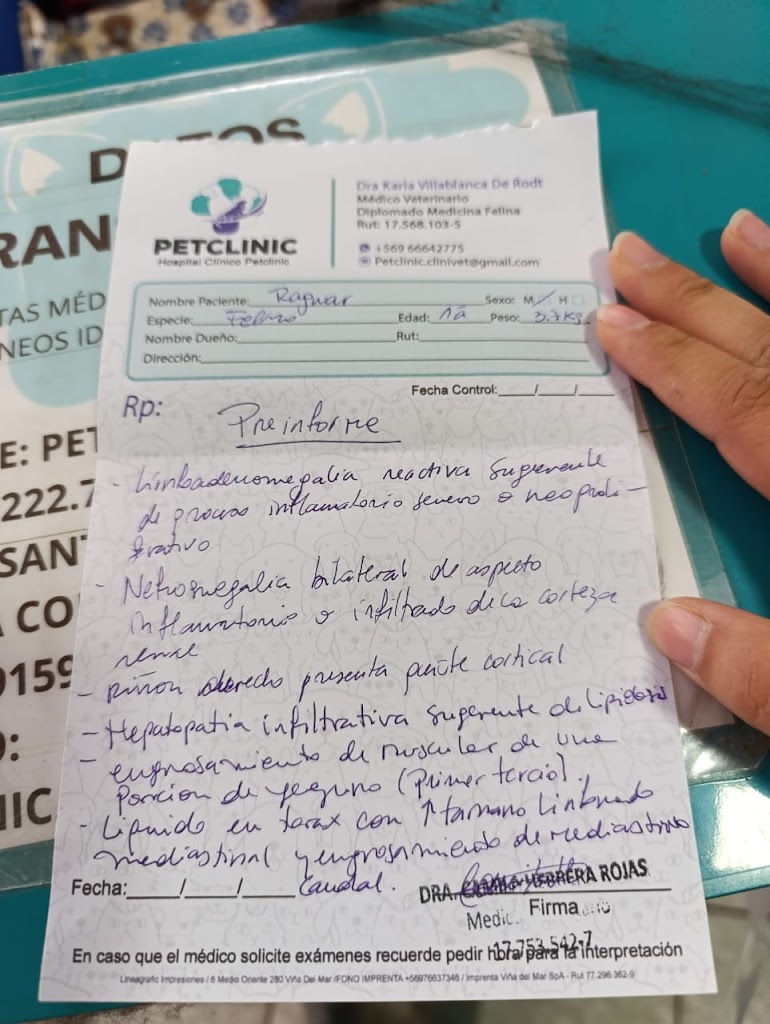 DATOS
RAN
TAS MÉD
NEOS ID
E: PET
222.7
SANT
CO
9159
O:
NIC
PETCLINIC
Hospital Clínico Petclinic
Dra Karla Villablanca De Rodt
Médico Veterinario
Diplomado Medicina Felina
Rut: 17.568.103-5
+569 66642775
Petclinic.clinivet@gmail.com
Nombre Paciente: Ragnar Sexo: M H
Especie: Felino Edad: 1a Peso: 3.7 kg
Nombre Dueño: Rut:
Dirección:
Fecha Control: / /
Rp:
Preinforme
- Linfoadenomegalia reactiva sugerente
de proceso inflamatorio severo o neoproli-
ferativo
- Nefromegalia bilateral de aspecto
inflamatorio o infiltrado de la corteza
renal
- riñon derecho presenta quiste cortical
- Hepatopatia infiltrativa sugerente de lipidosis
- engrosamiento de muscular de una
porcion de yeyuno (Primer tercio).
- Liquido en torax con ↑ tamano linfonodo
mediastinal y engrosamiento de mediastino
caudal.
Fecha: / /
DRA. CAMILA HERRERA ROJAS
Firma
17.753.542-7
En caso que el médico solicite exámenes recuerde pedir hora para la interpretación
Lineagrafic Impresiones / 6 Medio Oriente 280 Viña Del Mar /FONO IMPRENTA +56976637346 / Imprenta Viña del Mar SpA - Rut 77.296.362-9